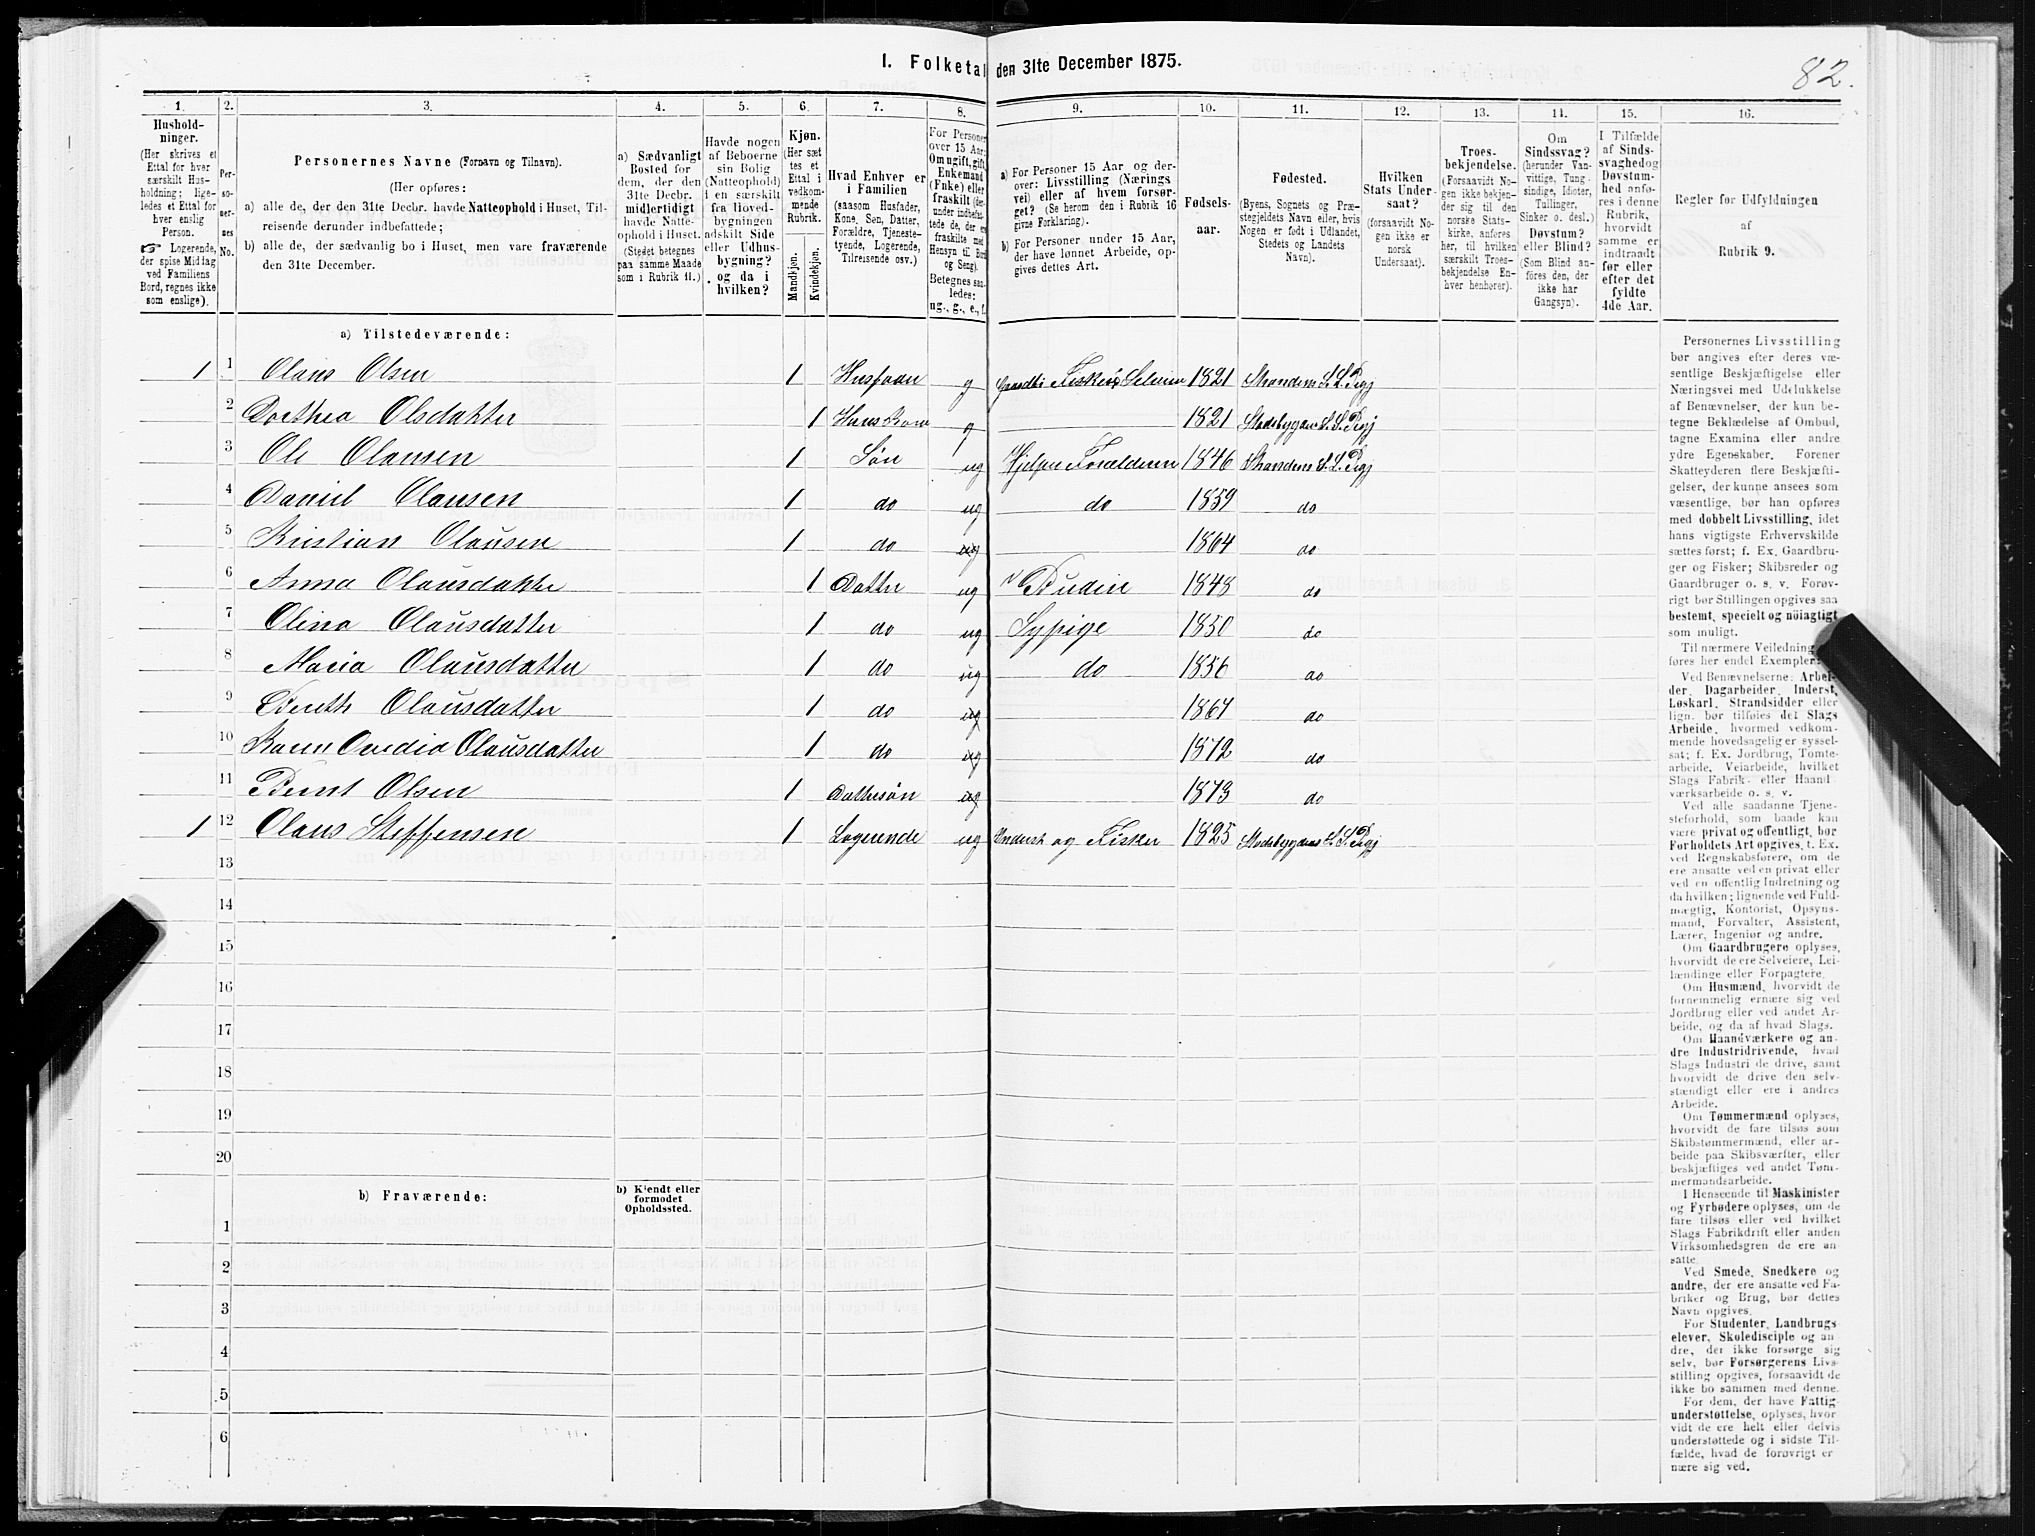 I. Folketal den 31te December 1875.
82.
1. 2. 3. 4. 5. 6. 7. 8. 9. 10. 11. 12. 13. 14. 15. 16.
Hushold-
ninger.
(Her skrives et
Ettal for hver
særskilt Hus-
holdning; lige-
ledes et Ettal for
hver enslig
Person.
☞ Logerende,
der spise Middag
ved Familiens
Bord, regnes ikke
som enslige).
Per-
so-
ner-
nes
No.
Personernes Navne (Fornavn og Tilnavn).
(Her opføres:
a) alle de, der den 31te Decbr. havde Natteophold i Huset, Til-
reisende derunder indbefattede;
b) alle de, der sædvanlig bo i Huset, men vare fraværende
den 31te December.
a) Sædvanligt
Bosted for
dem, der den
31te Decbr.
midlertidigt
havde Natte-
ophold i Huset.
(Stedet betegnes
paa samme Maade
som i Rubrik 11.)
Havde nogen
af Beboerne
sin Bolig
(Natteophold)
i en særskilt
fra Hoved-
bygningen
adskilt Side
eller Udhus-
bygning?
og da i
hvilken?
Kjøn.
(Her sæt
tes et
Ettal i
vedkom-
mende
Rubrik.
Mandkjøn.
Kvindekjøn.
Hvad Enhver er
i Familien
(saasom Husfader,
Kone, Søn, Datter,
Forældre, Tjeneste-
tyende, Logerende,
Tilreisende osv.)
For Personer
over 15 Aar:
Om ugift, gift,
Enkemand
(Enke) eller
fraskilt (der-
under indbefat-
tede de, der ere
fraskilte med
Hensyn til Bord
og Seng).
Betegnes saa-
ledes:
ug., g., e., f.
a) For Personer 15 Aar og der-
over: Livsstilling (Nærings
vei) eller af hvem forsør-
get? (Se herom den i Rubrik 16
givne Forklaring).
b) For Personer under 15 Aar,
der have lønnet Arbeide, op-
gives dettes Art.
Fødsels-
aar.
Fødested.
(Byens, Sognets og Præ-
stegjeldets Navn eller, hvis
Nogen er født i Udlandet,
Stedets og Landets
Navn).
Hvilken
Stats Under-
saat?
(forsaavidt No-
gen ikke er
norsk
Undersaat).
Troes-
bekjendelse.
(Forsaavidt No-
gen ikke bekjen-
der sig til den
norske Stats-
kirke, anføres
her, til hvilken
særskilt Troes-
bekjendelse En-
hver henhører).
Om
Sindssvag?
(herunder Van-
vittige, Tung-
sindige, Idioter,
Tullinger,
Sinker o. desl.)
Døvstum?
eller Blind?
(Som Blind an-
føres den, der
ikke har
Gangsyn).
I Tilfælde
af Sinds-
svaghed og
Døvstum-
hed anfø-
res i denne
Rubrik,
hvorvidt
samme er
indtraadt
før eller
efter det
fyldte
4de Aar.
Regler for Udfyldningen
af
Rubrik 9.
a) Tilstedeværende:
1 1 Olaus Olsen 1 Husfaar g Gaardbr Fisker Seleier 1821 Stranden S. L. Prgj
2 Dorthea Olsdatter 1 Hans Kone g 1821 Stadsbygden S. S. Prgj
3 Ole Olausen 1 Søn ug Hjelper Forælderen 1846 Stranden S. L. Prgj
4 Daniel Olausen 1 do ug do 1859 do
5 Kristian Olausen 1 do ug 1864 do
6 Anna Olausdatter 1 Datter ug Budeie 1848 do
7 Olina Olausdatter 1 do ug Sypige 1850 do
8 Maria Olausdatter 1 do ug do 1856 do
9 Bereth Olausdatter 1 do ug 1867 do
10 Karen Ovedia Olausdatter 1 do ug 1872 do
11 Bernt Olsen 1 Dattersøn ug 1873 do
1 12 Olaus Steffensen 1 Logerende ug Inderst og Fisker 1825 Stadsbygdens S. S. Prgj
13
14
15
16
17
18
19
20
b) Fraværende:
b) Kjendt eller
formodet
Opholdssted.
1
2
3
4
5
6
Personernes Livsstilling
bør angives efter deres væ-
sentlige Beskjæftigelse eller
Næringsvei med Udelukkelse
af Benævnelser, der kun be-
tegne Beklædelse af Ombud,
tagne Examina eller andre
ydre Egenskaber. Forener
Skatteyderen flere Beskjæfti-
gelser, der kunne ansees som
væsentlige, bør han opføres
med dobbelt Livsstilling, idet
hans vigtigste Erhvervskilde
sættes først; f. Ex. Gaardbru-
ger og Fisker; Skibsreder og
Gaardbruger o. s. v. Forøv-
rigt bør Stillingen opgives saa
bestemt, specielt og nöiagtigt
som muligt.
Til nærmere Veiledning
føres her endel Exempler:
Ved Benævnelserne: Arbei-
der, Dagarbeider, Inderst,
Løskarl, Strandsidder eller
lign. bør tilføies det Slags
Arbeide, hvormed vedkom-
mende hovedsagelig er syssel-
sat; f. Ex. Jordbrug, Tomte-
arbeide, Veiarbeide, hvilket
Slags Fabrik- eller Haand-
værksarbeide o. s. v.
Ved alle saadanne Tjene-
steforhold, som baade kan
være privat og offentligt, bør
Forholdets Art opgives, t. Ex.
ved Regnskabsførere, om de
ere ansatte ved en privat eller
ved en offentlig Indretning og
da hvilken; lignende ved Fuld-
mægtig, Kontorist, Opsyns-
mand, Forvalter, Assistent,
Lærer, Ingeniør og andre.
Om Gaardbrugere oplyses,
hvorvidt de ere Selveiere, Lei-
lændinge eller Forpagtere.
Om Husmænd, hvorvidt de
fornemmelig ernære sig ved
Jordbrug eller ved andet Ar-
beide, og da af hvad Slags.
Om Haandværkere og an-
dre Industridrivende, hvad
Slags Industri de drive, samt
hvorvidt de drive den selv-
stændigt eller ere i andres
Arbeide.
Om Tømmermænd oplyses,
hvorvidt de fare tilsøs som
Skibstømmermænd, eller ar-
beide paa Skibsværfter, eller
beskjæftiges ved andet Tøm-
mermandsarbeide.
I Henseende til Maskinister
og Fyrbødere oplyses, om de
fare tilsøs eller ved hvilket
Slags Fabrikdrift eller anden
Virksomhedsgren de ere an-
satte.
Ved Smede, Snedkere og
andre, der ere ansatte ved Fa-
briker og Brug, bør dettes
Navn opgives.
For Studenter, Landbrugs-
elever, Skoledisciple og an-
dre, der ikke forsørge sig
selv, bør Forsørgerens Livs-
stilling opgives, forsaavidt de
ikke bo sammen med denne.
For dem, der have Fattig-
understøttelse, oplyses, hvor-
vidt de ere helt eller delvis
understøttede og i sidste Til-
fælde, hvad de forøvrigt er-
nære sig ved.